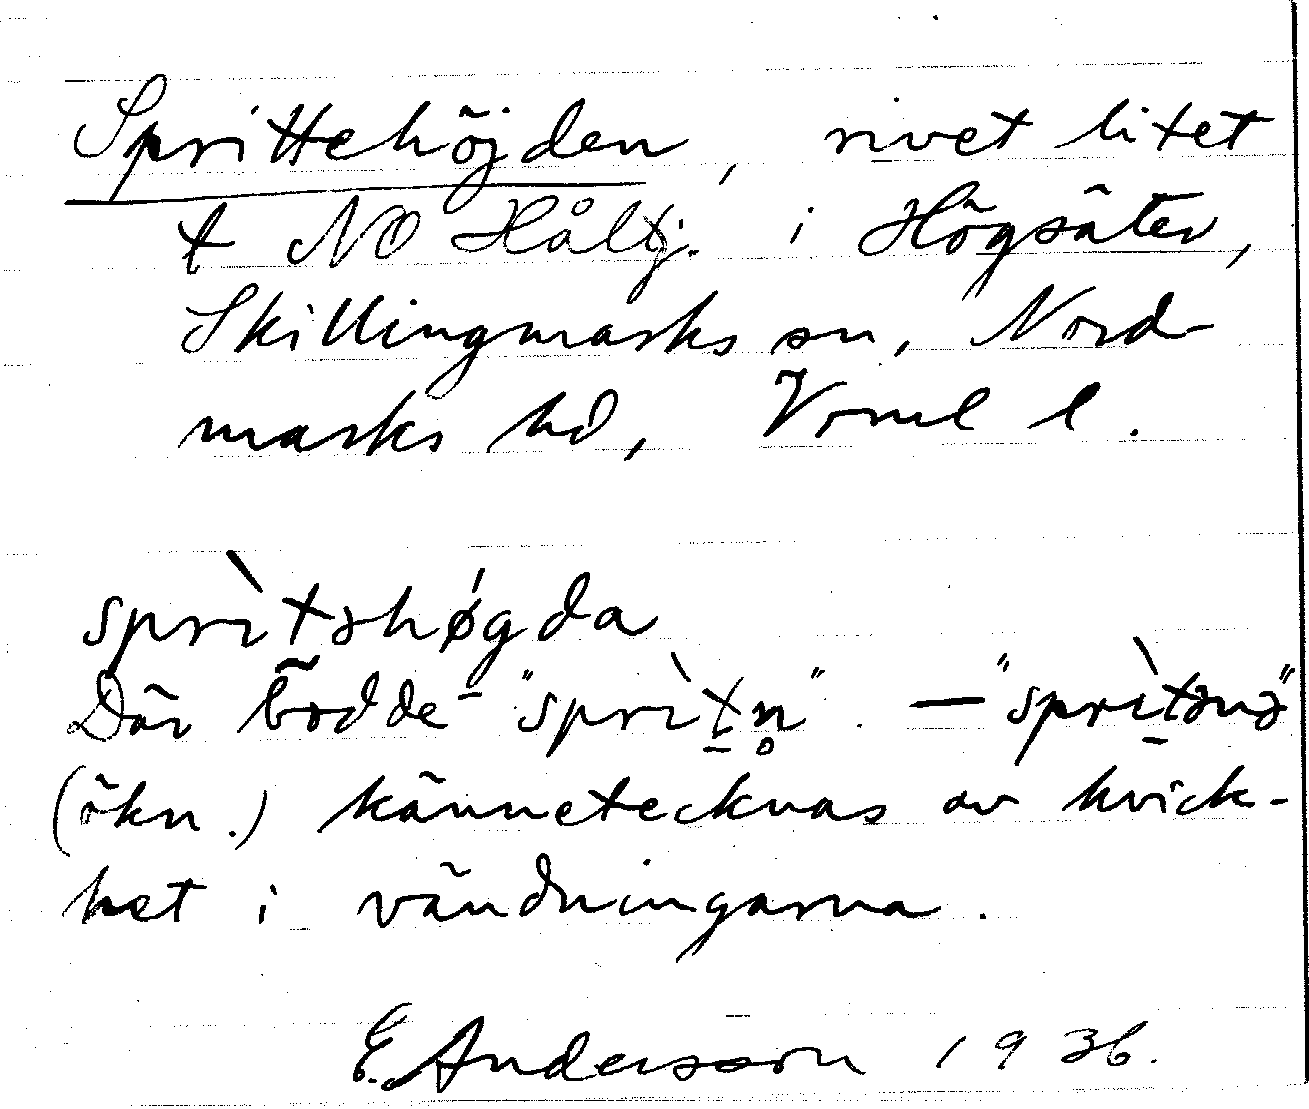 Sprittehöjden, rivet litet
t NO Håltj. i Högsäter,
Skillingmarks sn, Nord-
marks hd, Vrml l.
sprìtəhǿgda
Där bodde "sprìtn̥". — "sprìtənə"
(ökn.) kännetecknas av kvick-
het i vändningarna.
E. Anderson 1936.